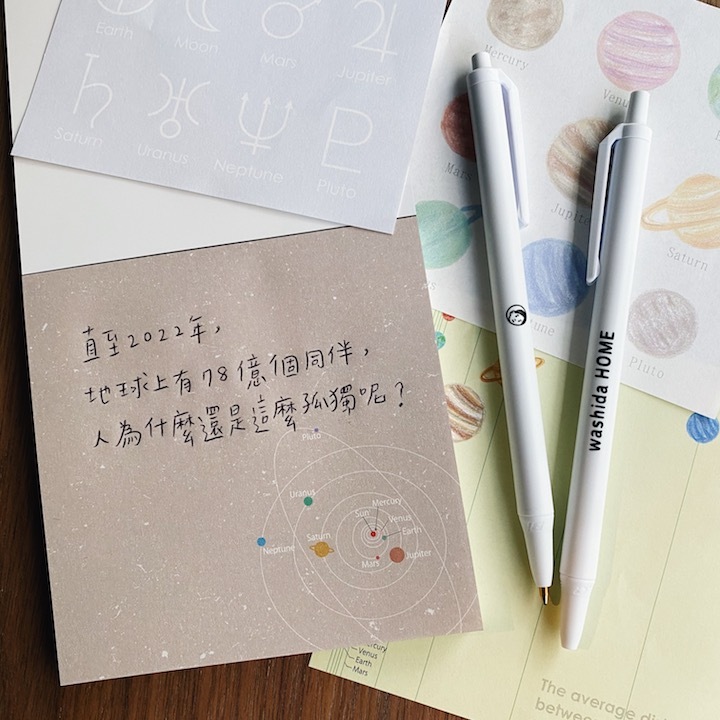 Earth
Moon
Mars
Jupiter
Saturn
Uranus
Neptune
Pluto
Mercury
Venus
Mars
Jupiter
Saturn
Pluto
washida HOME
直至2022年，
地球上有78億個同伴，
人為什麼還是這麼孤獨呢？
Pluto
Uranus
Mercury
Sun
Venus
Earth
Neptune
Saturn
Mars
Jupiter
Venus
Earth
Mars
The average
between